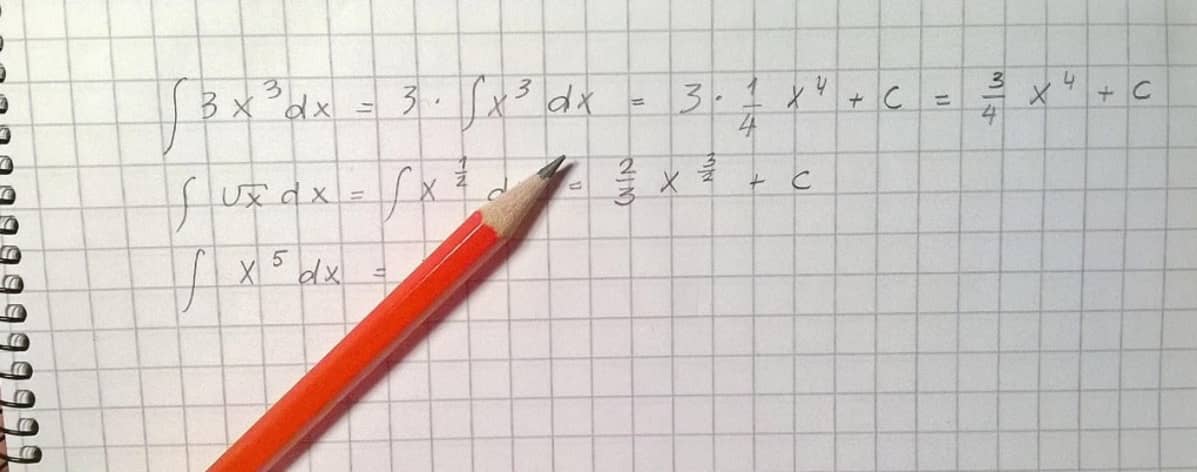 ∫ 3x³dx = 3 · ∫x³ dx = 3 · 1/4 x⁴ + C = 3/4 x⁴ + C
∫ √x dx = ∫x^(1/2) d = 2/3 x^(3/2) + C
∫ x⁵ dx =